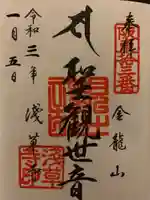 奉拝
坂東十三番
金龍山
聖観世音
浅草寺
令和三年
一月五日